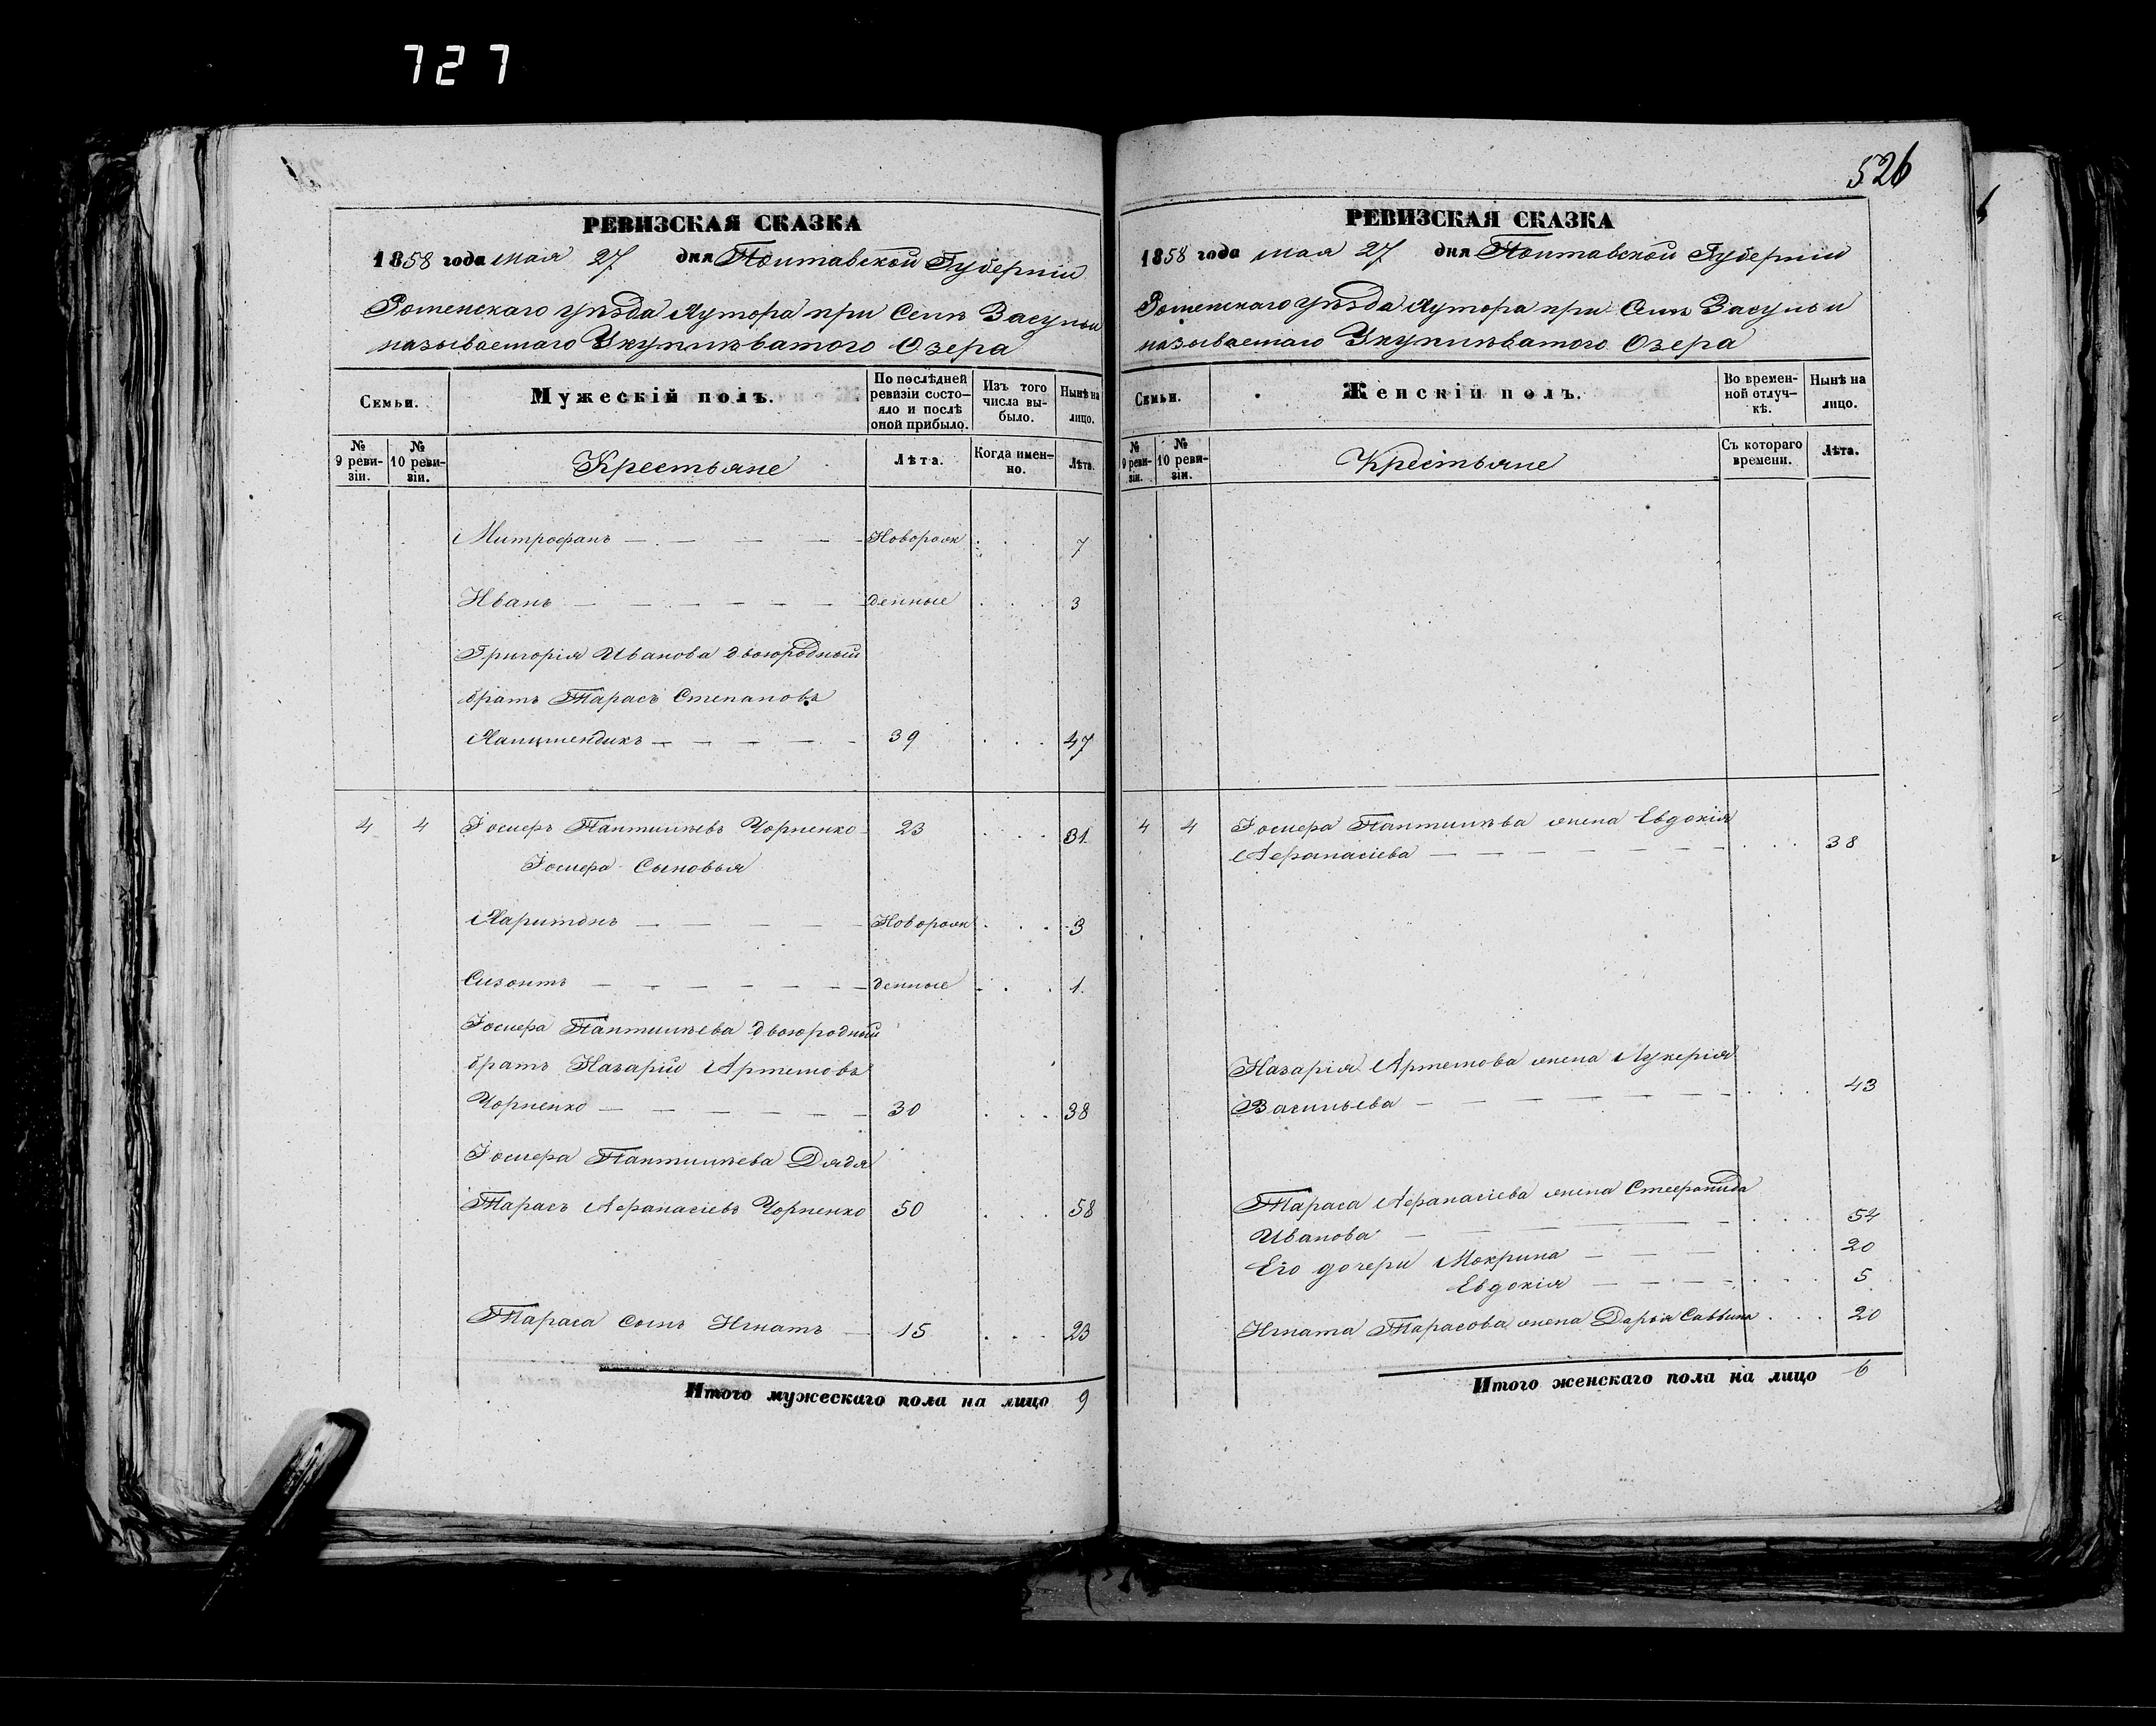 727
526
РЕВИЗСКАЯ СКАЗКА
1858 года мая 27 дня Полтавской Губерніи
Роменскаго уѣзда Хутора при Селѣ Засульи
называемаго Озера
Семьи.
Мужескій полъ.
По послѣдней ревизіи состояло и послѣ оной прибыло.
Изъ того числа выбыло.
Нынѣ на лицо.
№ 9 ревизіи.
№ 10 ревизіи.
Крестьяне
Лѣта.
Когда именно.
Лѣта.
Митрофанъ Новорож 7
Иванъ денные 3
Григорія Иванова двоюродный
братъ Тарасъ Степановъ
39 47
4 4 Іосифъ Пантилѣевъ Чорненко 23 31
Іосифа Сыновья
Харитонъ Новорож 3
Сизонтъ денные 1
Іосифа Пантилѣева двоюродный
братъ Назарій Артемовъ
Чорненко 30 38
Іосифа Пантилѣева Дядя
Тарасъ Афанасіевъ Чорненко 50 58
Тараса сынъ Игнатъ 15 23
Итого мужескаго пола на лицо 9
РЕВИЗСКАЯ СКАЗКА
1858 года мая 27 дня Полтавской Губерніи
Роменскаго уѣзда Хутора при Селѣ Засульи
называемаго Озера
Семьи.
Женскій полъ.
Во временной отлучкѣ.
Нынѣ на лицо.
№ 9 ревизіи.
№ 10 ревизіи.
Крестьяне
Съ котораго времени.
Лѣта.
4 4 Іосифа Пантилѣва жена Евдокія
Афанасіева 38
Назарія Артемова жена Лукерія
Васильева 43
Тараса Афанасіева жена Стефанида
Иванова 54
Его дочери Мокрина 20
Евдокія 5
Игната Тарасова жена Дарія Саввина 20
Итого женскаго пола на лицо 6